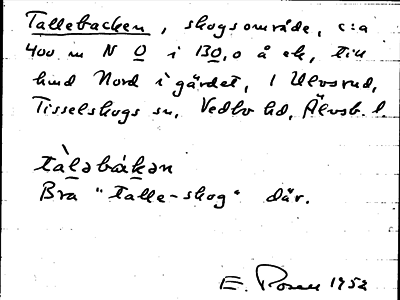 Tallebacken, skogsområde, c:a
400 m N O i 130,0 å ek, till
hmd Nord i gärdet, 1 Ulvsrud,
Tisselskogs sn, Vedbo hd, Älvsb. l.
tàləbákən
Bra "talle-skog" där.
E. Rosen 1952